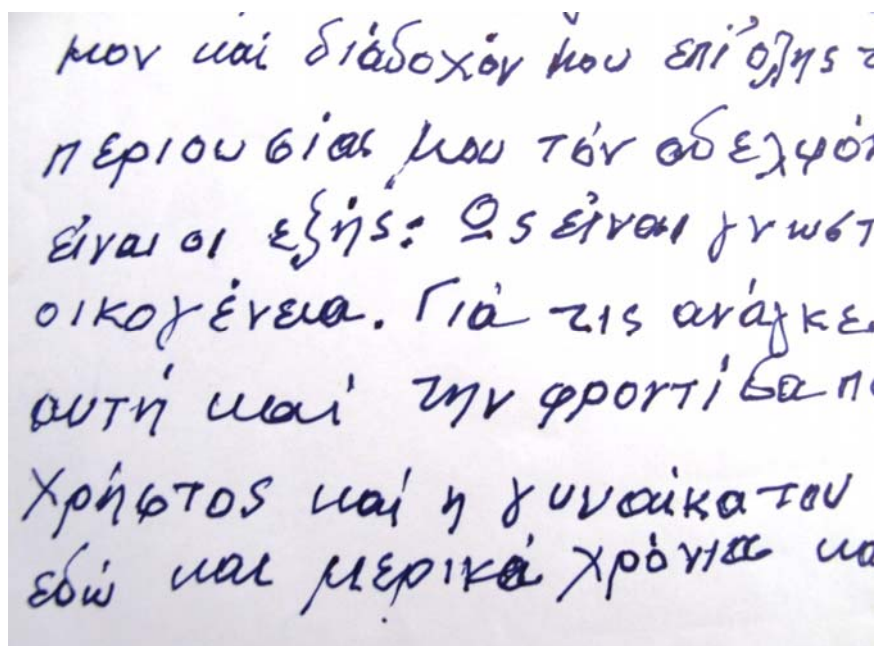 μον και διάδοχόν μου επί όλης τ
περιουσίας μου τόν αδελφόν
είναι οι εξής: Ως είναι γνωστ
οικογένεια. Γιά τις ανάγκε
αυτή καί την φροντίσα πο
Χρήστος καί η γυναίκα του
εδώ και μερικά χρόνια κα